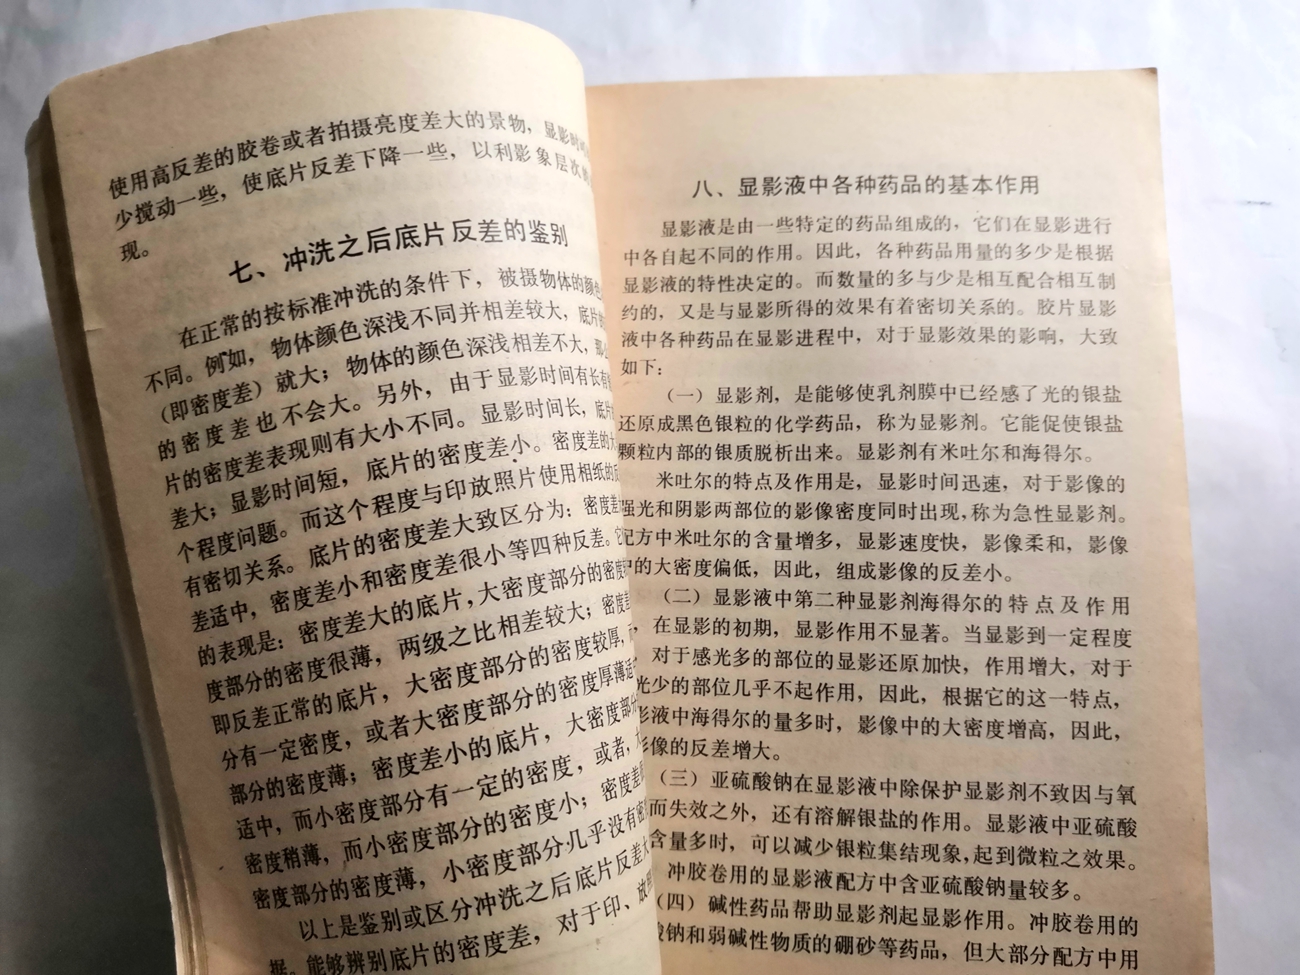 使用高反差的胶卷或者拍摄亮度差大的景物，显影时
少搅动一些，使底片反差下降一些，以利影象层次的
现。
七、冲洗之后底片反差的鉴别
在正常的按标准冲洗的条件下，被摄物体的颜色
不同。例如，物体颜色深浅不同并相差较大，底片的
（即密度差）就大；物体的颜色深浅相差不大，那么
的密度差也不会大。另外，由于显影时间有长有
片的密度差表现则有大小不同。显影时间长，底片
差大；显影时间短，底片的密度差小。密度差的大
个程度问题。而这个程度与印放照片使用相纸的反
有密切关系。底片的密度差大致区分为：密度差
差适中，密度差小和密度差很小等四种反差。它
的表现是：密度差大的底片，大密度部分的密度
度部分的密度很薄，两级之比相差较大；密度差
即反差正常的底片，大密度部分的密度较厚，而
分有一定密度，或者大密度部分的密度厚薄适
部分的密度薄；密度差小的底片，大密度部分
适中，而小密度部分有一定的密度，或者，大
密度稍薄，而小密度部分的密度小；密度差
密度部分的密度薄，小密度部分几乎没有密
以上是鉴别或区分冲洗之后底片反差大
据。能够辨别底片的密度差，对于印、放
八、显影液中各种药品的基本作用
显影液是由一些特定的药品组成的，它们在显影进行
中各自起不同的作用。因此，各种药品用量的多少是根据
显影液的特性决定的。而数量的多与少是相互配合相互制
约的，又是与显影所得的效果有着密切关系的。胶片显影
液中各种药品在显影进程中，对于显影效果的影响，大致
如下：
（一）显影剂，是能够使乳剂膜中已经感了光的银盐
还原成黑色银粒的化学药品，称为显影剂。它能促使银盐
颗粒内部的银质脱析出来。显影剂有米吐尔和海得尔。
米吐尔的特点及作用是，显影时间迅速，对于影像的
强光和阴影两部位的影像密度同时出现，称为急性显影剂。
配方中米吐尔的含量增多，显影速度快，影像柔和，影像
中的大密度偏低，因此，组成影像的反差小。
（二）显影液中第二种显影剂海得尔的特点及作用
，在显影的初期，显影作用不显著。当显影到一定程度
对于感光多的部位的显影还原加快，作用增大，对于
光少的部位几乎不起作用，因此，根据它的这一特点，
影液中海得尔的量多时，影像中的大密度增高，因此，
影像的反差增大。
（三）亚硫酸钠在显影液中除保护显影剂不致因与氧
而失效之外，还有溶解银盐的作用。显影液中亚硫酸
含量多时，可以减少银粒集结现象，起到微粒之效果。
冲胶卷用的显影液配方中含亚硫酸钠量较多。
（四）碱性药品帮助显影剂起显影作用。冲胶卷用的
酸钠和弱碱性物质的硼砂等药品，但大部分配方中用